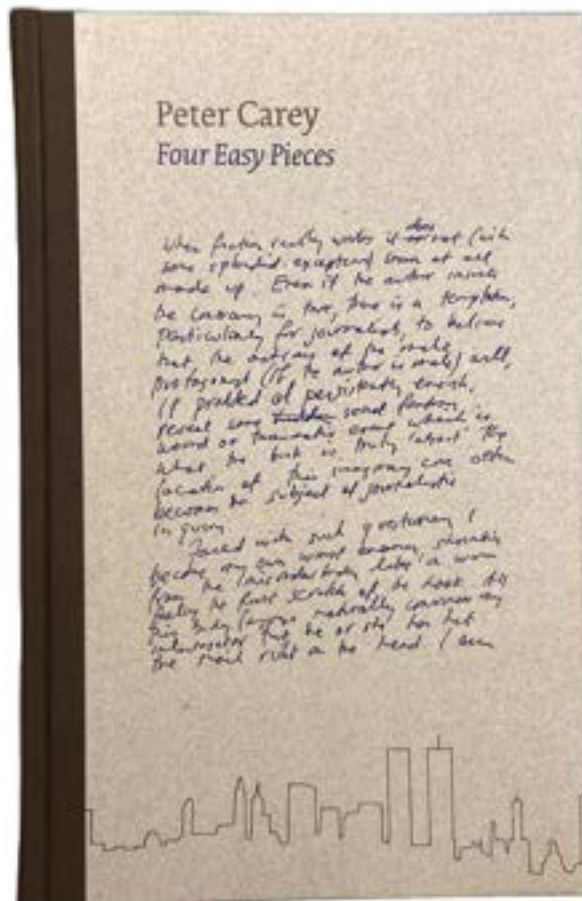 Peter Carey
Four Easy Pieces
When fiction really works it does not (with
some splendid exceptions) seem at all
made up. Even if the author
the is a
particularly for journalists, to believe
that the of the male
protagonist (if the author is male) will,
if probed at persistently enough,
reveal some secret
wound or traumatic event which is
what the book is truly "about" The
location of this imaginary core often
becomes the subject of journalistic
inquiry
Faced with such questioning I
become my own worst enemy,
from the like a worm
feeling the first scratch of the hook
body naturally
that he or she has hit
the nail right on the head. I am